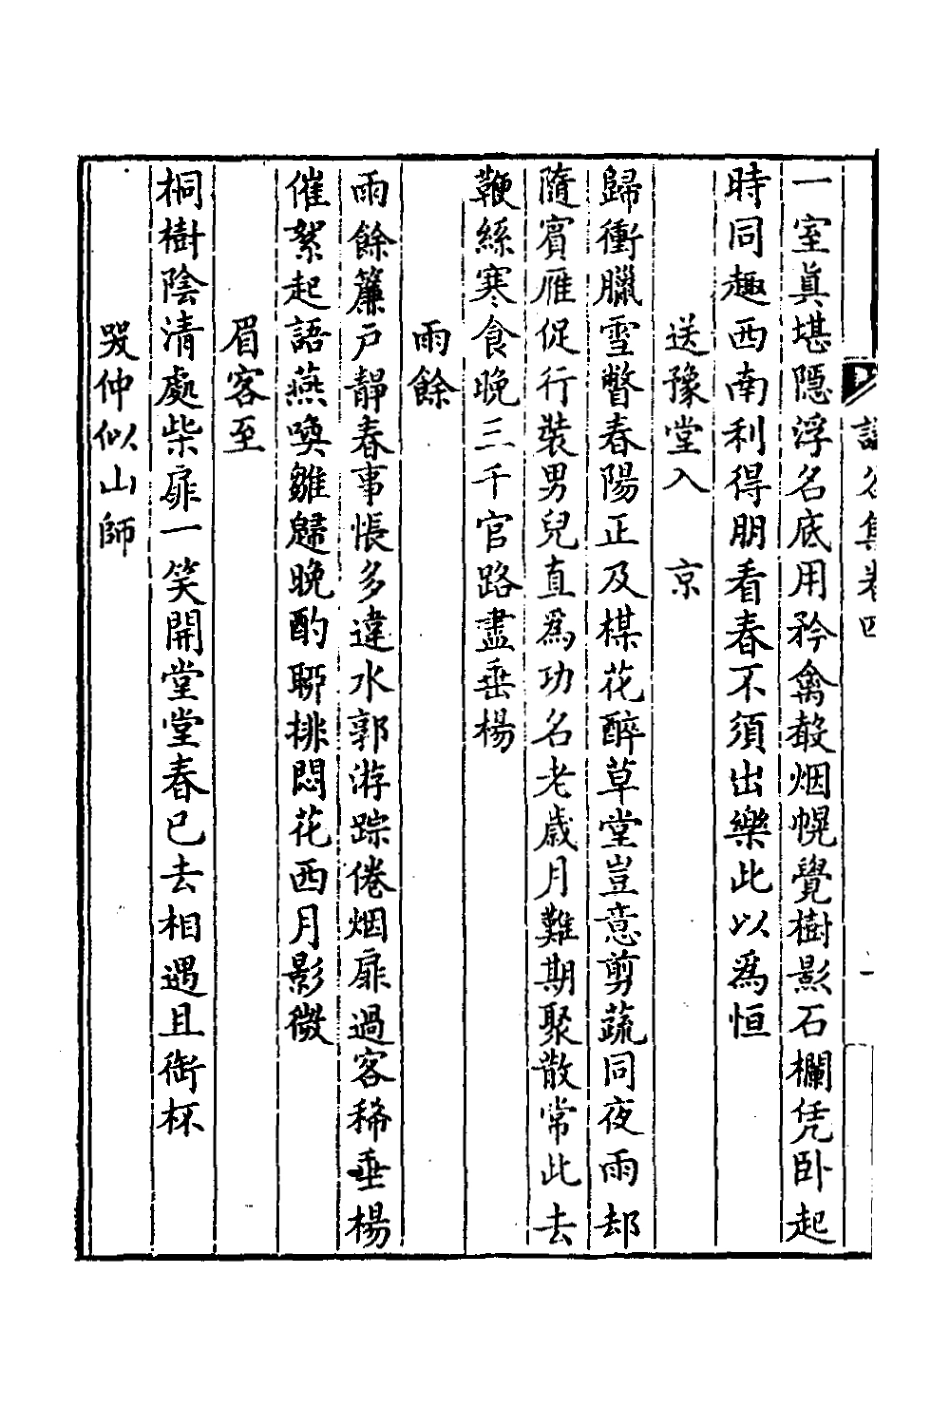 一室眞堪隱浮名底用矜禽敲烟幌覺樹影石欄凭卧起
時同趣西南利得朋看春不須出樂此以爲恒
送豫堂入　京
歸衝臘雪瞥春陽正及楳花醉草堂豈意剪蔬同夜雨却
隨賓雁促行裝男兒直爲功名老歲月難期聚散常此去
鞭絲寒食晚三千官路盡垂楊
雨餘
雨餘簾戶靜春事悵多違水郭游踪倦烟扉過客稀垂楊
催絮起語燕喚雛歸晚酌聊排悶花西月影微
眉客至
桐樹陰清處柴扉一笑開堂堂春已去相遇且銜杯
哭仲似山師
集卷四
一